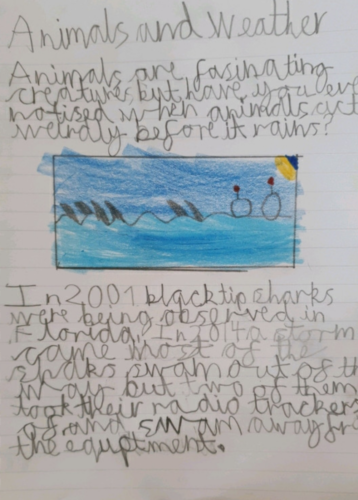 Animals and Weather
Animals are fasinating
creatures, but have you ev
notised when animals act
weirdly before it rains?
In 2001 blacktip sharks
were being observed in
Florida. In 2014 a storm
came most of the
sharks swam out of th
way but two of them
took their radio trackers
of and swam away fro
the equptment.